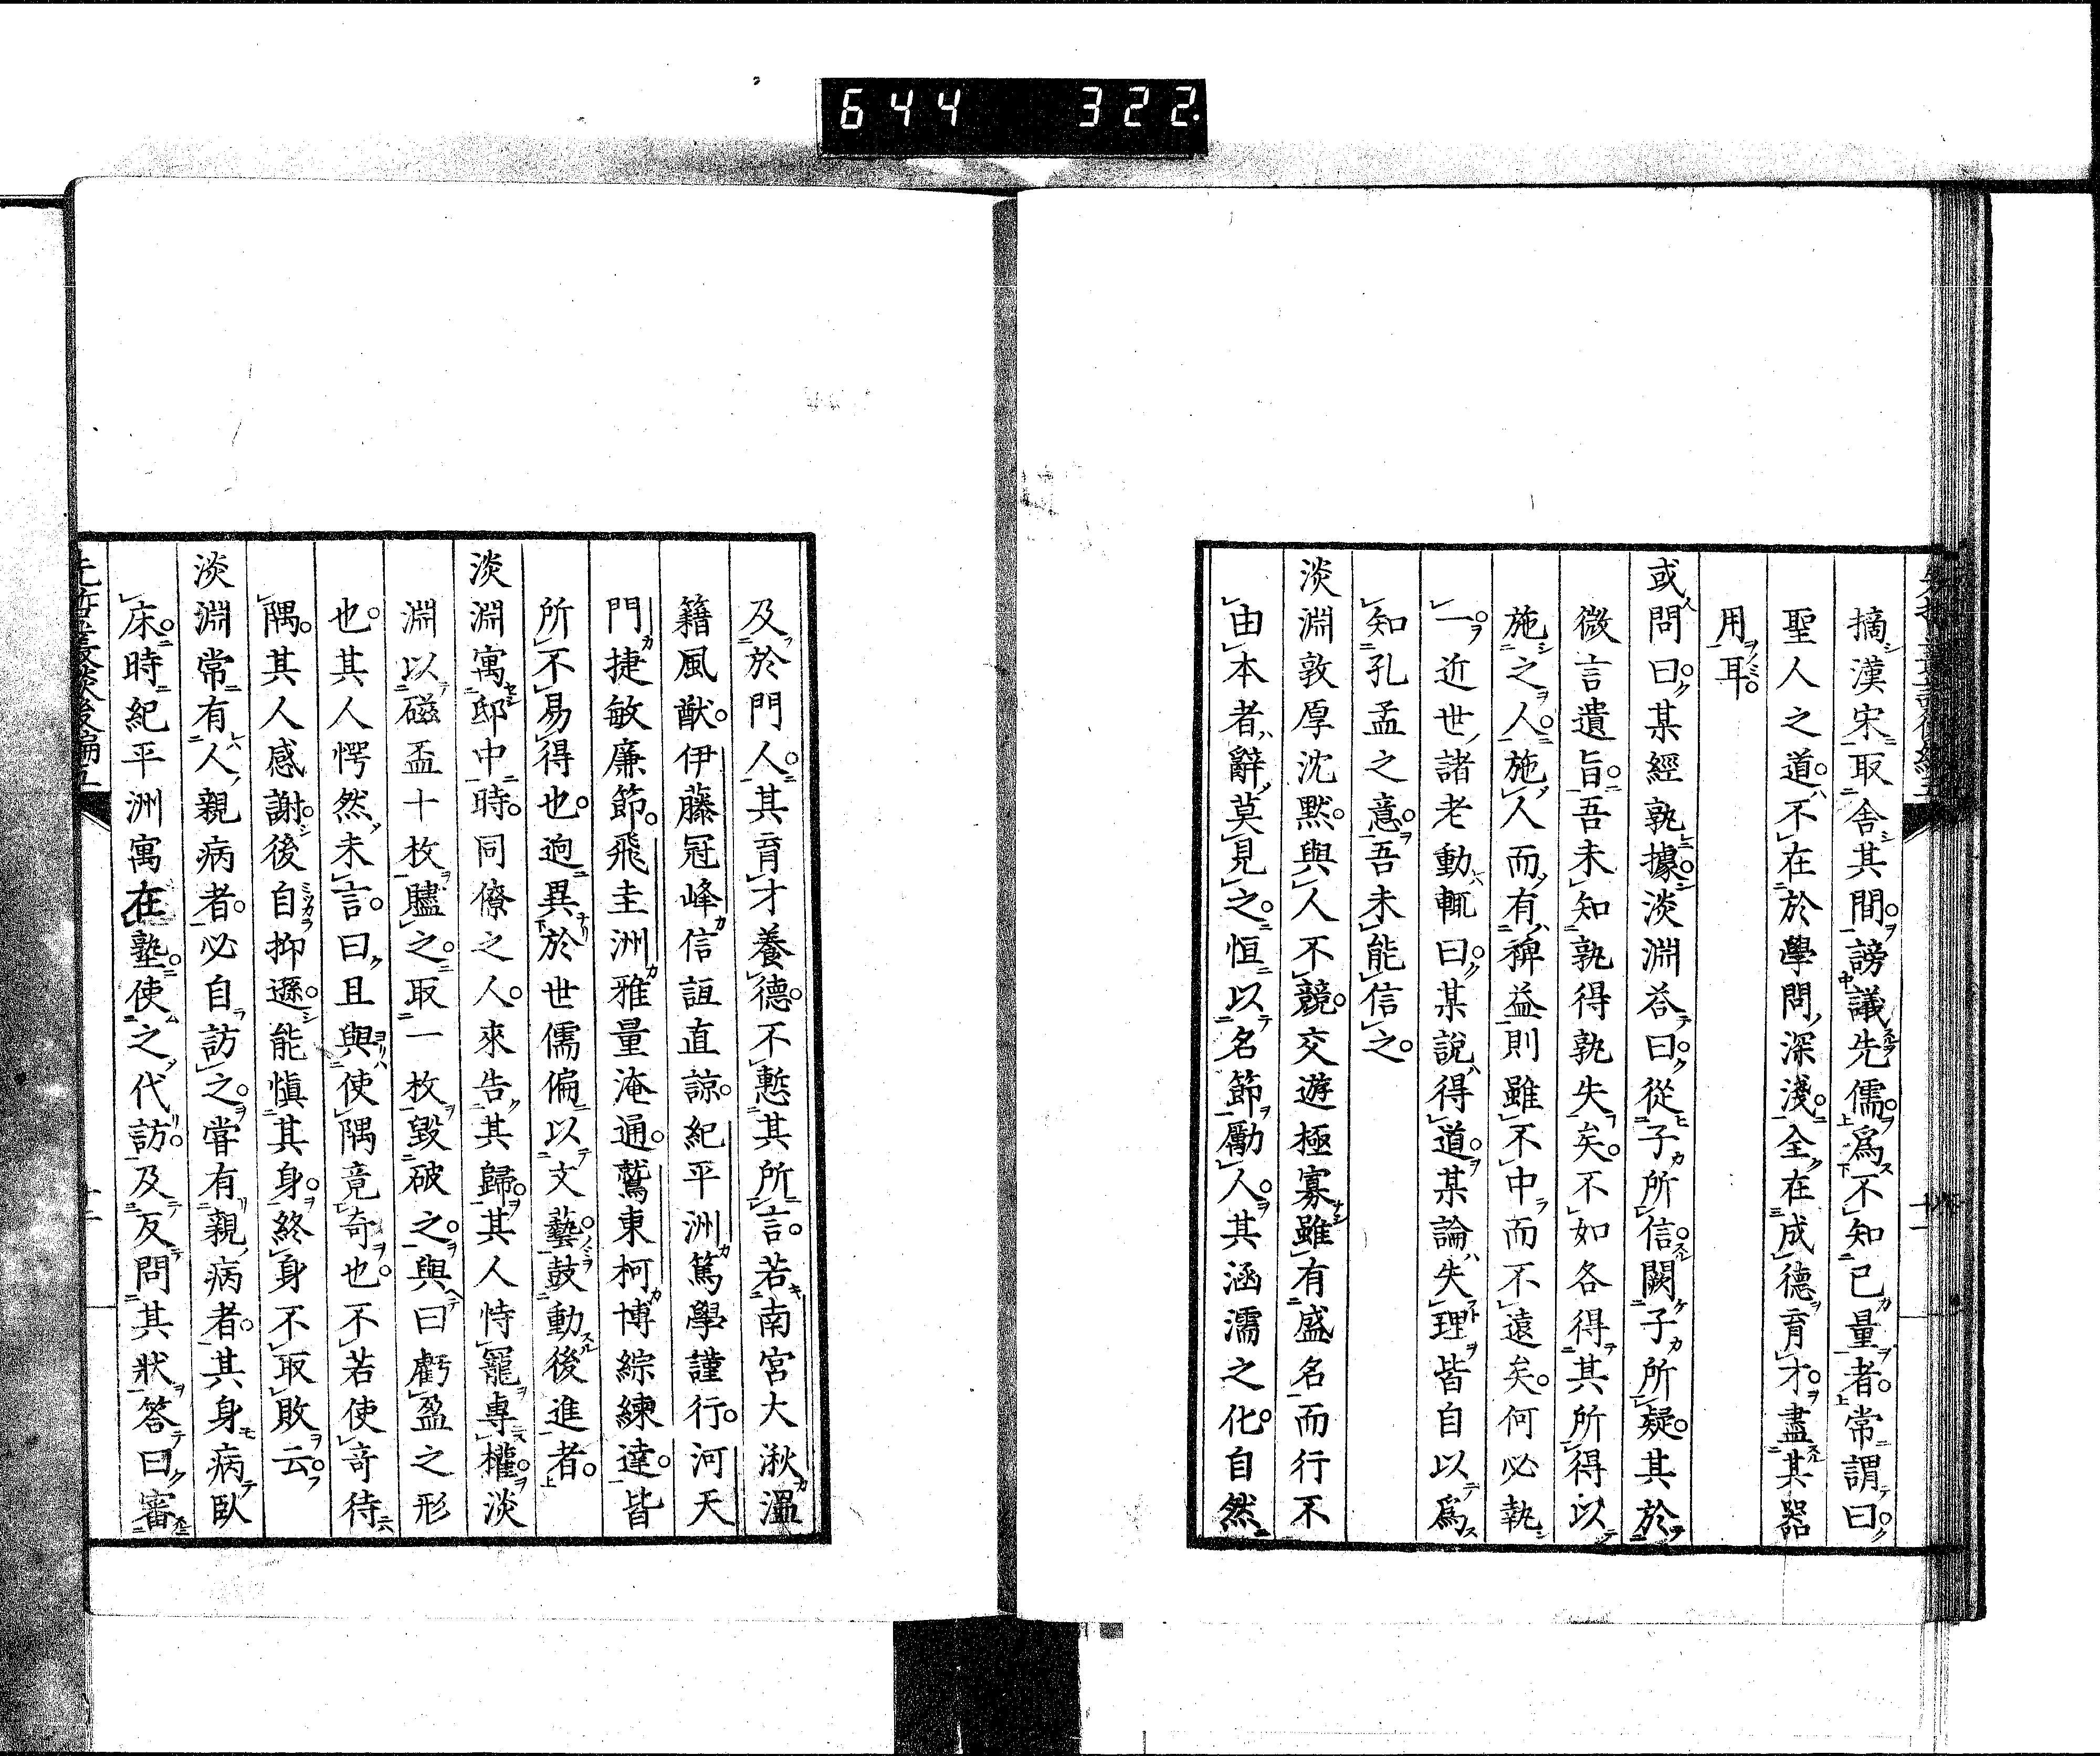 644 322
摘漢宋取舍其間。謗議先儒。爲不知己量者。常謂曰。
聖人之道。不在於學問深淺。全在成德育才。盡其器
用耳。
或問曰。某經孰據。淡淵荅曰。從子所信。闕子所疑。其於
微言遺旨。吾未知孰得孰失矣。不如各得其所得以
施之人。施人而有裨益則雖不中而不遠矣。何必執
一。近世諸老動輒曰。某說得道。某論失理。皆自以爲
知孔孟之意。吾未能信之。
淡淵敦厚沈默。與人不競。交遊極寡。雖有盛名而行不
由本者。辭莫見之。恒以名節勵人。其涵濡之化。自然
及於門人。其育才養德。不慙其所言。若南宮大湫溫
籍風猷。伊藤冠峰信誼直諒。紀平洲篤學謹行。河天
門捷敏廉節。飛圭洲雅量淹通。鷲東柯博綜練達。皆
所不易得也。逈異於世儒偏以文藝鼓動後進者。
淡淵寓邸中時。同僚之人。來告其歸。其人恃寵專權。淡
淵以磁盃十枚贐之。取一枚毀破之。與曰虧盈之形
也。其人愕然未言。曰且與使隅竟奇也。不若使奇待
隅。其人感謝。後自抑遜。能愼其身。終身不取敗云。
淡淵常有人親病者。必自訪之。嘗有親病者。其身病臥
床。時紀平洲寓在塾。使之代訪。及反問其狀答曰審
先哲叢談後編五
十二